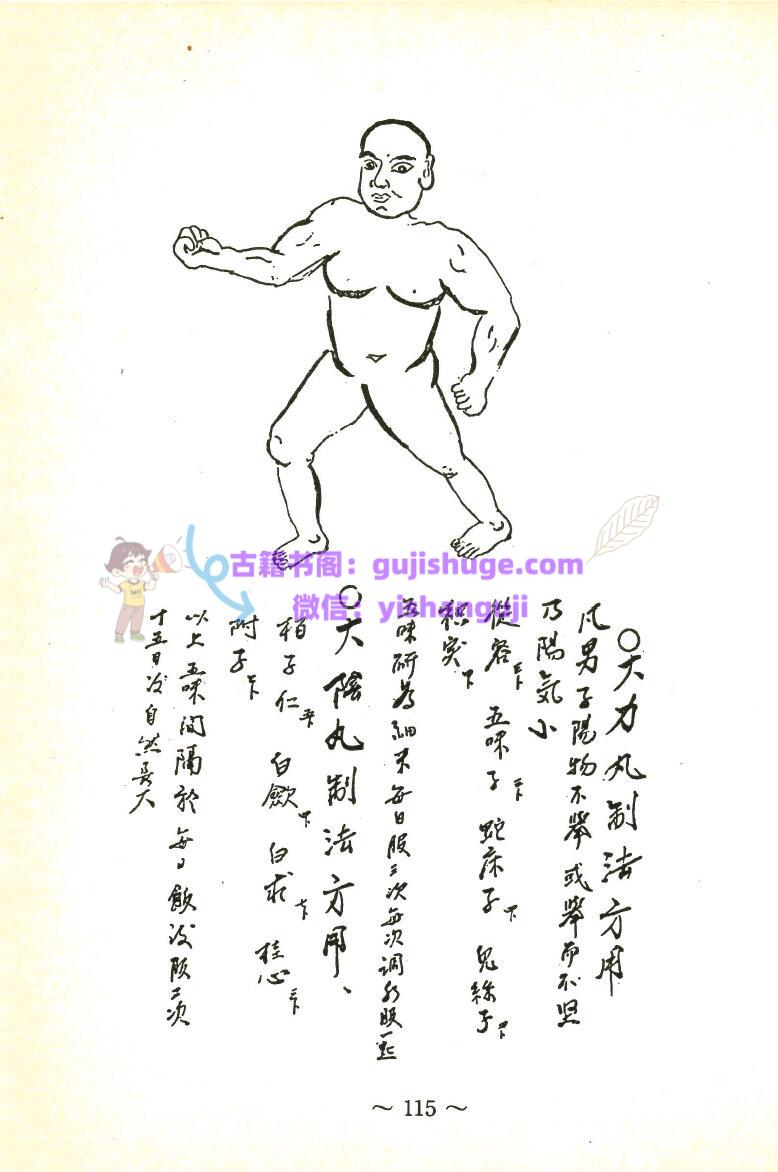 〇大力丸制法方用
凡男子陽物不舉或舉而不坚
乃陽氣小
從容 五味子 蛇床子 兔絲子
枳实
五味研為細末每日服三次每次調水服一匙
〇大陰丸制法方用、
柏子仁 白歛 白求 桂心
附子
以上五味间隔於每日飲後服二次
十五日後自然長大
古籍书阁：gujishuge.com
微信：yishangaji
~ 115 ~